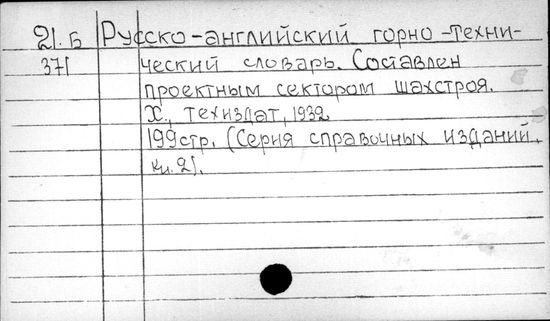 21. Б Русско-английский горно-техни-
371 ческий словарь. Составлен
проектным сектором шахстроя.
Х., техиздат, 1932
199стр. (Серия справочных изданий.
кн. 2).